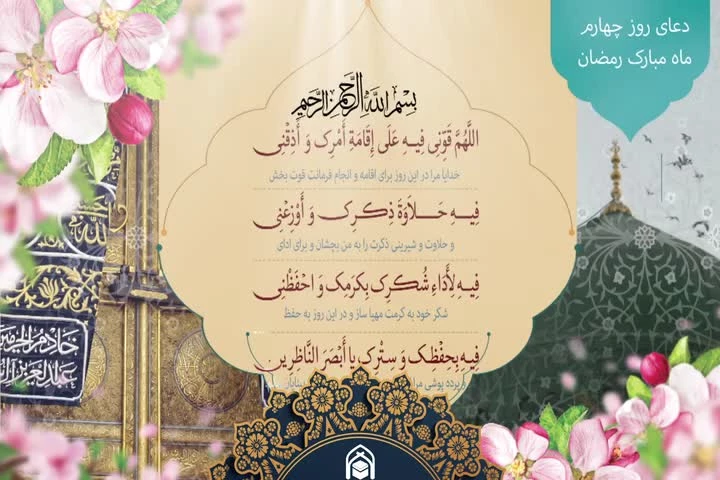 دعای روز چهارم
ماه مبارک رمضان
بِسْمِ اللَّهِ الرَّحْمَنِ الرَّحِيمِ
اللَّهُمَّ قَوِّنِي فِيهِ عَلَى إِقَامَةِ أَمْرِكَ وَ أَذِقْنِي
خدایا مرا در این روز برای اقامه و انجام فرمانت قوت بخش
فِيهِ حَلَاوَةَ ذِكْرِكَ وَ أَوْزِعْنِي
و حلاوت و شیرینی ذکرت را به من بچشان و برای ادای
فِيهِ لِأَدَاءِ شُكْرِكَ بِكَرَمِكَ وَ احْفَظْنِي
شکر خود به کرمت مهیا ساز و در این روز به حفظ
فِيهِ بِحِفْظِكَ وَ سِتْرِكَ يَا أَبْصَرَ النَّاظِرِينَ
وپرده پوشی مرا
الله
خادم الحرمين
عبد العزيز